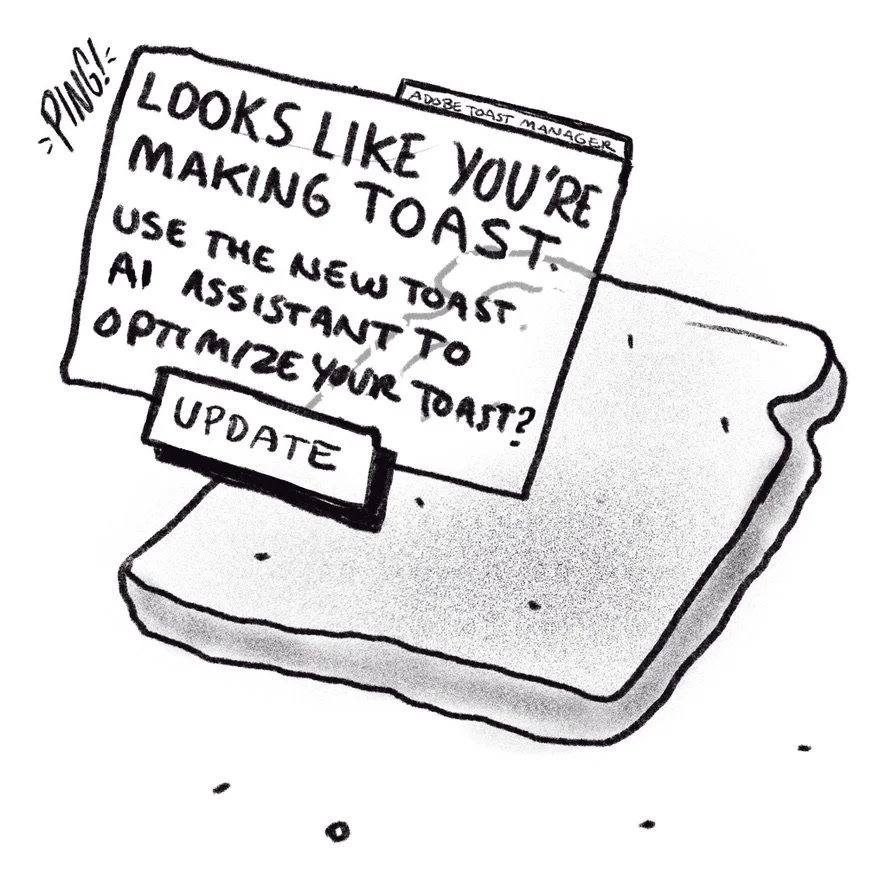 PING!
ADOBE TOAST MANAGER
LOOKS LIKE YOU'RE
MAKING TOAST.
USE THE NEW TOAST
AI ASSISTANT TO
OPTIMIZE YOUR TOAST?
UPDATE